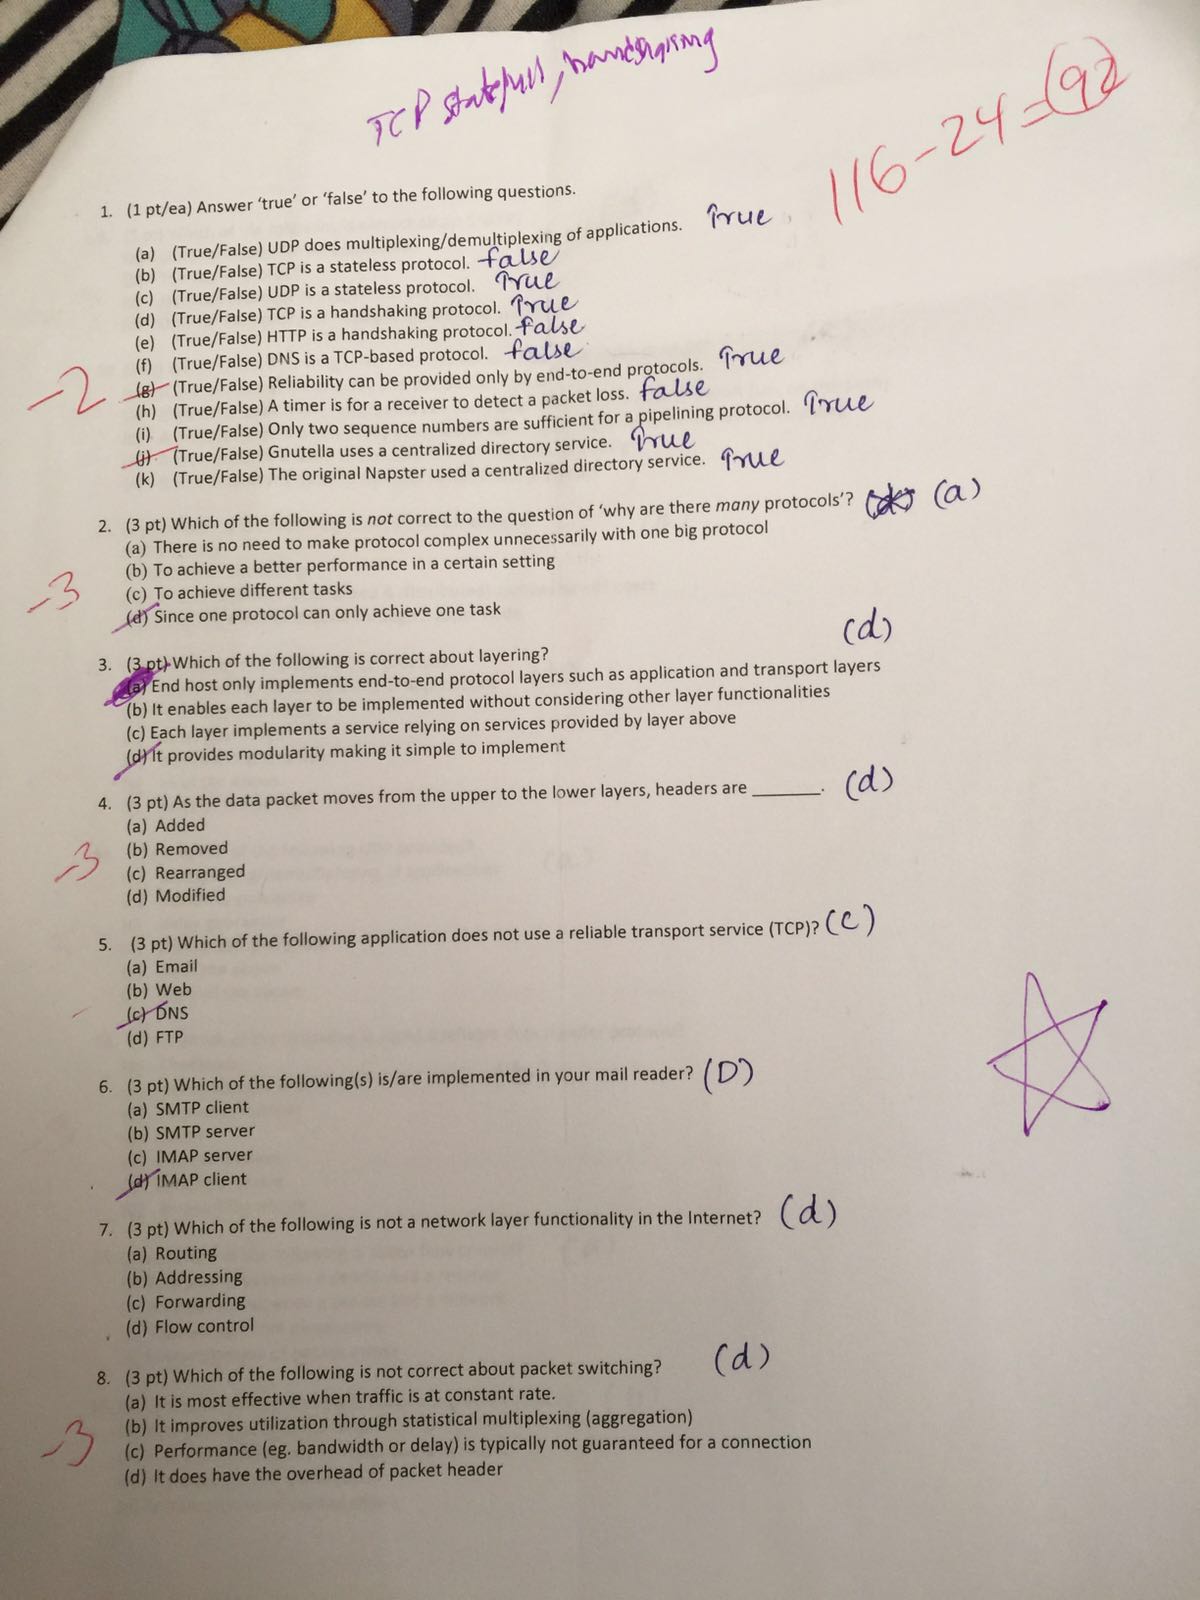 TCP statefull, handshaking
116-24=92
1. (1 pt/ea) Answer 'true' or 'false' to the following questions.
(a) (True/False) UDP does multiplexing/demultiplexing of applications. True
(b) (True/False) TCP is a stateless protocol. false
(c) (True/False) UDP is a stateless protocol. True
(d) (True/False) TCP is a handshaking protocol. True
(e) (True/False) HTTP is a handshaking protocol. false
(f) (True/False) DNS is a TCP-based protocol. false
-2 (g) (True/False) Reliability can be provided only by end-to-end protocols. True
(h) (True/False) A timer is for a receiver to detect a packet loss. false
(i) (True/False) Only two sequence numbers are sufficient for a pipelining protocol. True
(j) (True/False) Gnutella uses a centralized directory service. True
(k) (True/False) The original Napster used a centralized directory service. True
2. (3 pt) Which of the following is not correct to the question of 'why are there many protocols'? (a)
(a) There is no need to make protocol complex unnecessarily with one big protocol
(b) To achieve a better performance in a certain setting
-3 (c) To achieve different tasks
(d) Since one protocol can only achieve one task
3. (3 pt) Which of the following is correct about layering? (d)
(a) End host only implements end-to-end protocol layers such as application and transport layers
(b) It enables each layer to be implemented without considering other layer functionalities
(c) Each layer implements a service relying on services provided by layer above
(d) It provides modularity making it simple to implement
4. (3 pt) As the data packet moves from the upper to the lower layers, headers are _______. (d)
(a) Added
-3 (b) Removed
(c) Rearranged
(d) Modified
5. (3 pt) Which of the following application does not use a reliable transport service (TCP)? (C)
(a) Email
(b) Web
(c) DNS
(d) FTP
6. (3 pt) Which of the following(s) is/are implemented in your mail reader? (D)
(a) SMTP client
(b) SMTP server
(c) IMAP server
(d) IMAP client
7. (3 pt) Which of the following is not a network layer functionality in the Internet? (d)
(a) Routing
(b) Addressing
(c) Forwarding
(d) Flow control
8. (3 pt) Which of the following is not correct about packet switching? (d)
(a) It is most effective when traffic is at constant rate.
(b) It improves utilization through statistical multiplexing (aggregation)
-3 (c) Performance (eg. bandwidth or delay) is typically not guaranteed for a connection
(d) It does have the overhead of packet header